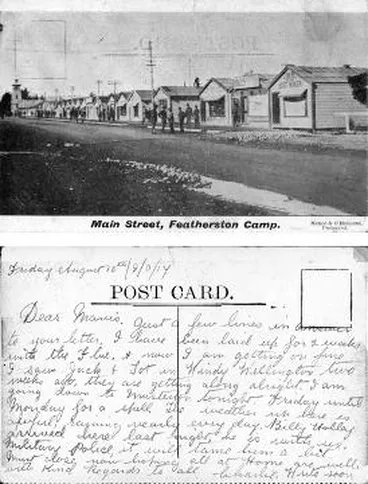 Main Street, Featherston Camp.
Friday August
POST CARD.
Dear Just a few lines in answer
to your letter, I have been laid up for 2 weeks
with the Flue, & now I am getting on fine
I saw Jack & Tot in Windy Wellington two
weeks ago, they are getting along alright. I am
going down to tonight Friday until
Monday for a spell. The weather up here is
awful, raining nearly every day. Billy
arrived here last night, so
Military Police, it will tame him a bit
Must close now hoping all at Home are well
with Kind Regards to all Write soon